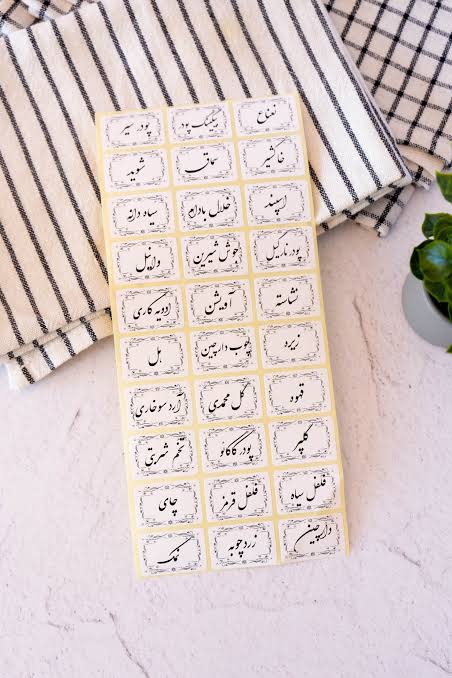 نعناع بیکینگ پودر پودر سیر
خاکشیر سماق شوید
اسپند خلال بادام سیاه دانه
پودر نارگیل جوش شیرین وانیل
نشاسته آویشن ادویه کاری
زیره چوب دارچین هل
قهوه گل محمدی آرد سوخاری
گلپر پودر کاکائو تخم شربتی
فلفل سیاه فلفل قرمز چای
دارچین زردچوبه نمک